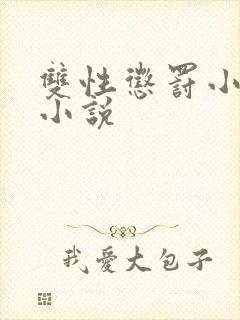 雙性懲罰小
小說
我愛大包子